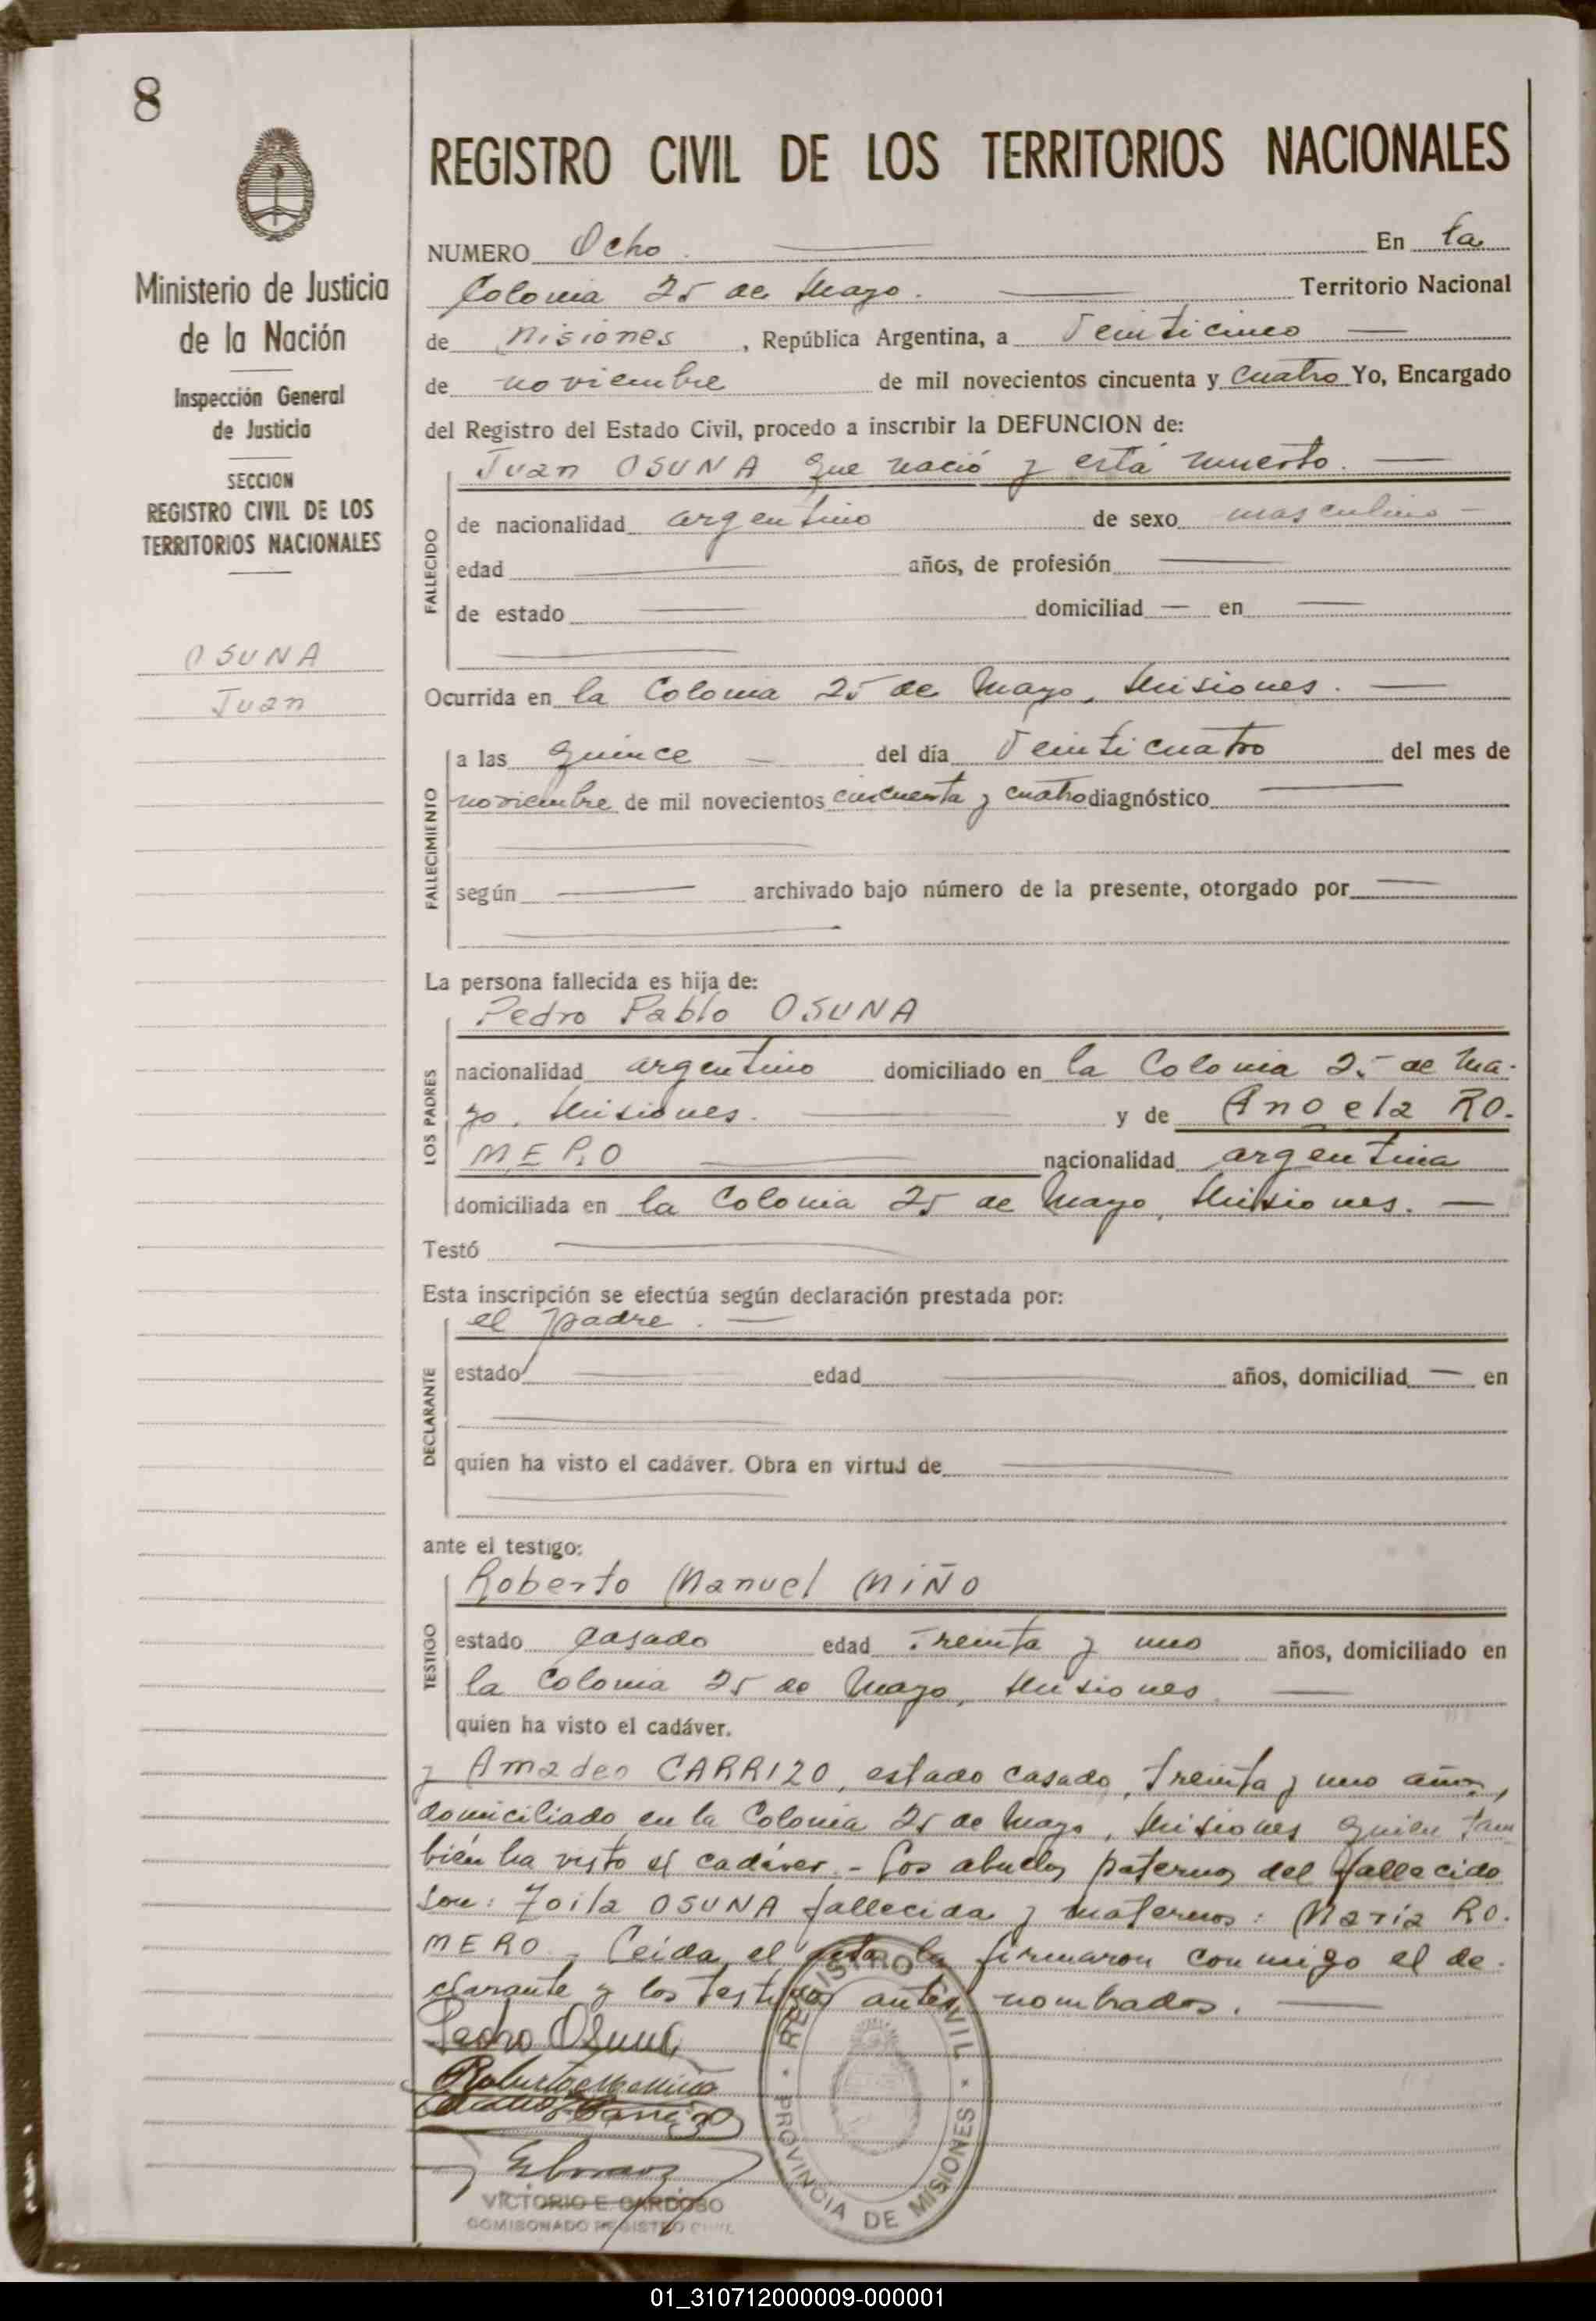 8
Ministerio de Justicia
de la Nación
Inspección General
de Justicia
SECCION
REGISTRO CIVIL DE LOS
TERRITORIOS NACIONALES
OSUNA
Juan
REGISTRO CIVIL DE LOS TERRITORIOS NACIONALES
NUMERO Ocho. En la
Colonia 25 de Mayo. Territorio Nacional
de Misiones, República Argentina, a Veinticinco
de noviembre de mil novecientos cincuenta y cuatro Yo, Encargado
del Registro del Estado Civil, procedo a inscribir la DEFUNCION de:
Juan OSUNA que nació y está muerto.
FALLECIDO
de nacionalidad argentino de sexo masculino
edad años, de profesión
de estado domiciliad en
Ocurrida en la Colonia 25 de Mayo, Misiones.
FALLECIMIENTO
a las quince del día Veinticuatro del mes de
noviembre de mil novecientos cincuenta y cuatro diagnóstico
según archivado bajo número de la presente, otorgado por
La persona fallecida es hija de:
LOS PADRES
Pedro Pablo OSUNA
nacionalidad argentino domiciliado en la Colonia 25 de Ma-
yo, Misiones. y de Angela RO-
MERO nacionalidad argentina
domiciliada en la Colonia 25 de Mayo, Misiones.
Testó
Esta inscripción se efectúa según declaración prestada por:
DECLARANTE
el padre.
estado edad años, domiciliad en
quien ha visto el cadáver. Obra en virtud de
ante el testigo:
TESTIGO
Roberto Manuel MIÑO
estado casado edad Treinta y uno años, domiciliado en
la Colonia 25 de Mayo, Misiones
quien ha visto el cadáver.
y Amadeo CARRIZO, estado casado, treinta y uno años,
domiciliado en la Colonia 25 de Mayo, Misiones quien tam
bién ha visto el cadáver.- Los abuelos paternos del fallecido
son: Zoila OSUNA fallecida y maternos: María RO-
MERO.- Leída el acta la firmaron conmigo el de-
clarante y los testigos antes nombrados.
Pedro Osuna
REGISTRO CIVIL
PROVINCIA DE MISIONES
VICTORIO E. CARDOSO
COMISONADO REGISTRO CIVIL
01_310712000009-000001